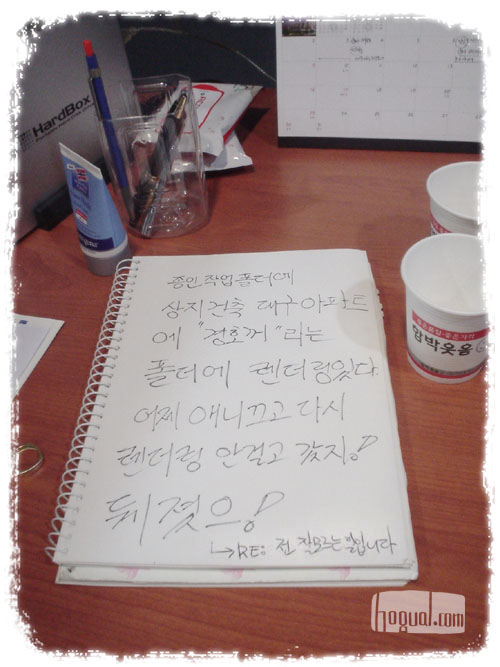 HardBox
종인 작업 폴더에
상지건축 대구아파트
에 "경호꺼"라는
폴더에 렌더링있다
어제 애니끄고 다시
렌더링 안걸고 갔지!
뒤졌으!
↳RE: 전 잘모르는 일입니다
함박웃음
hogual.com